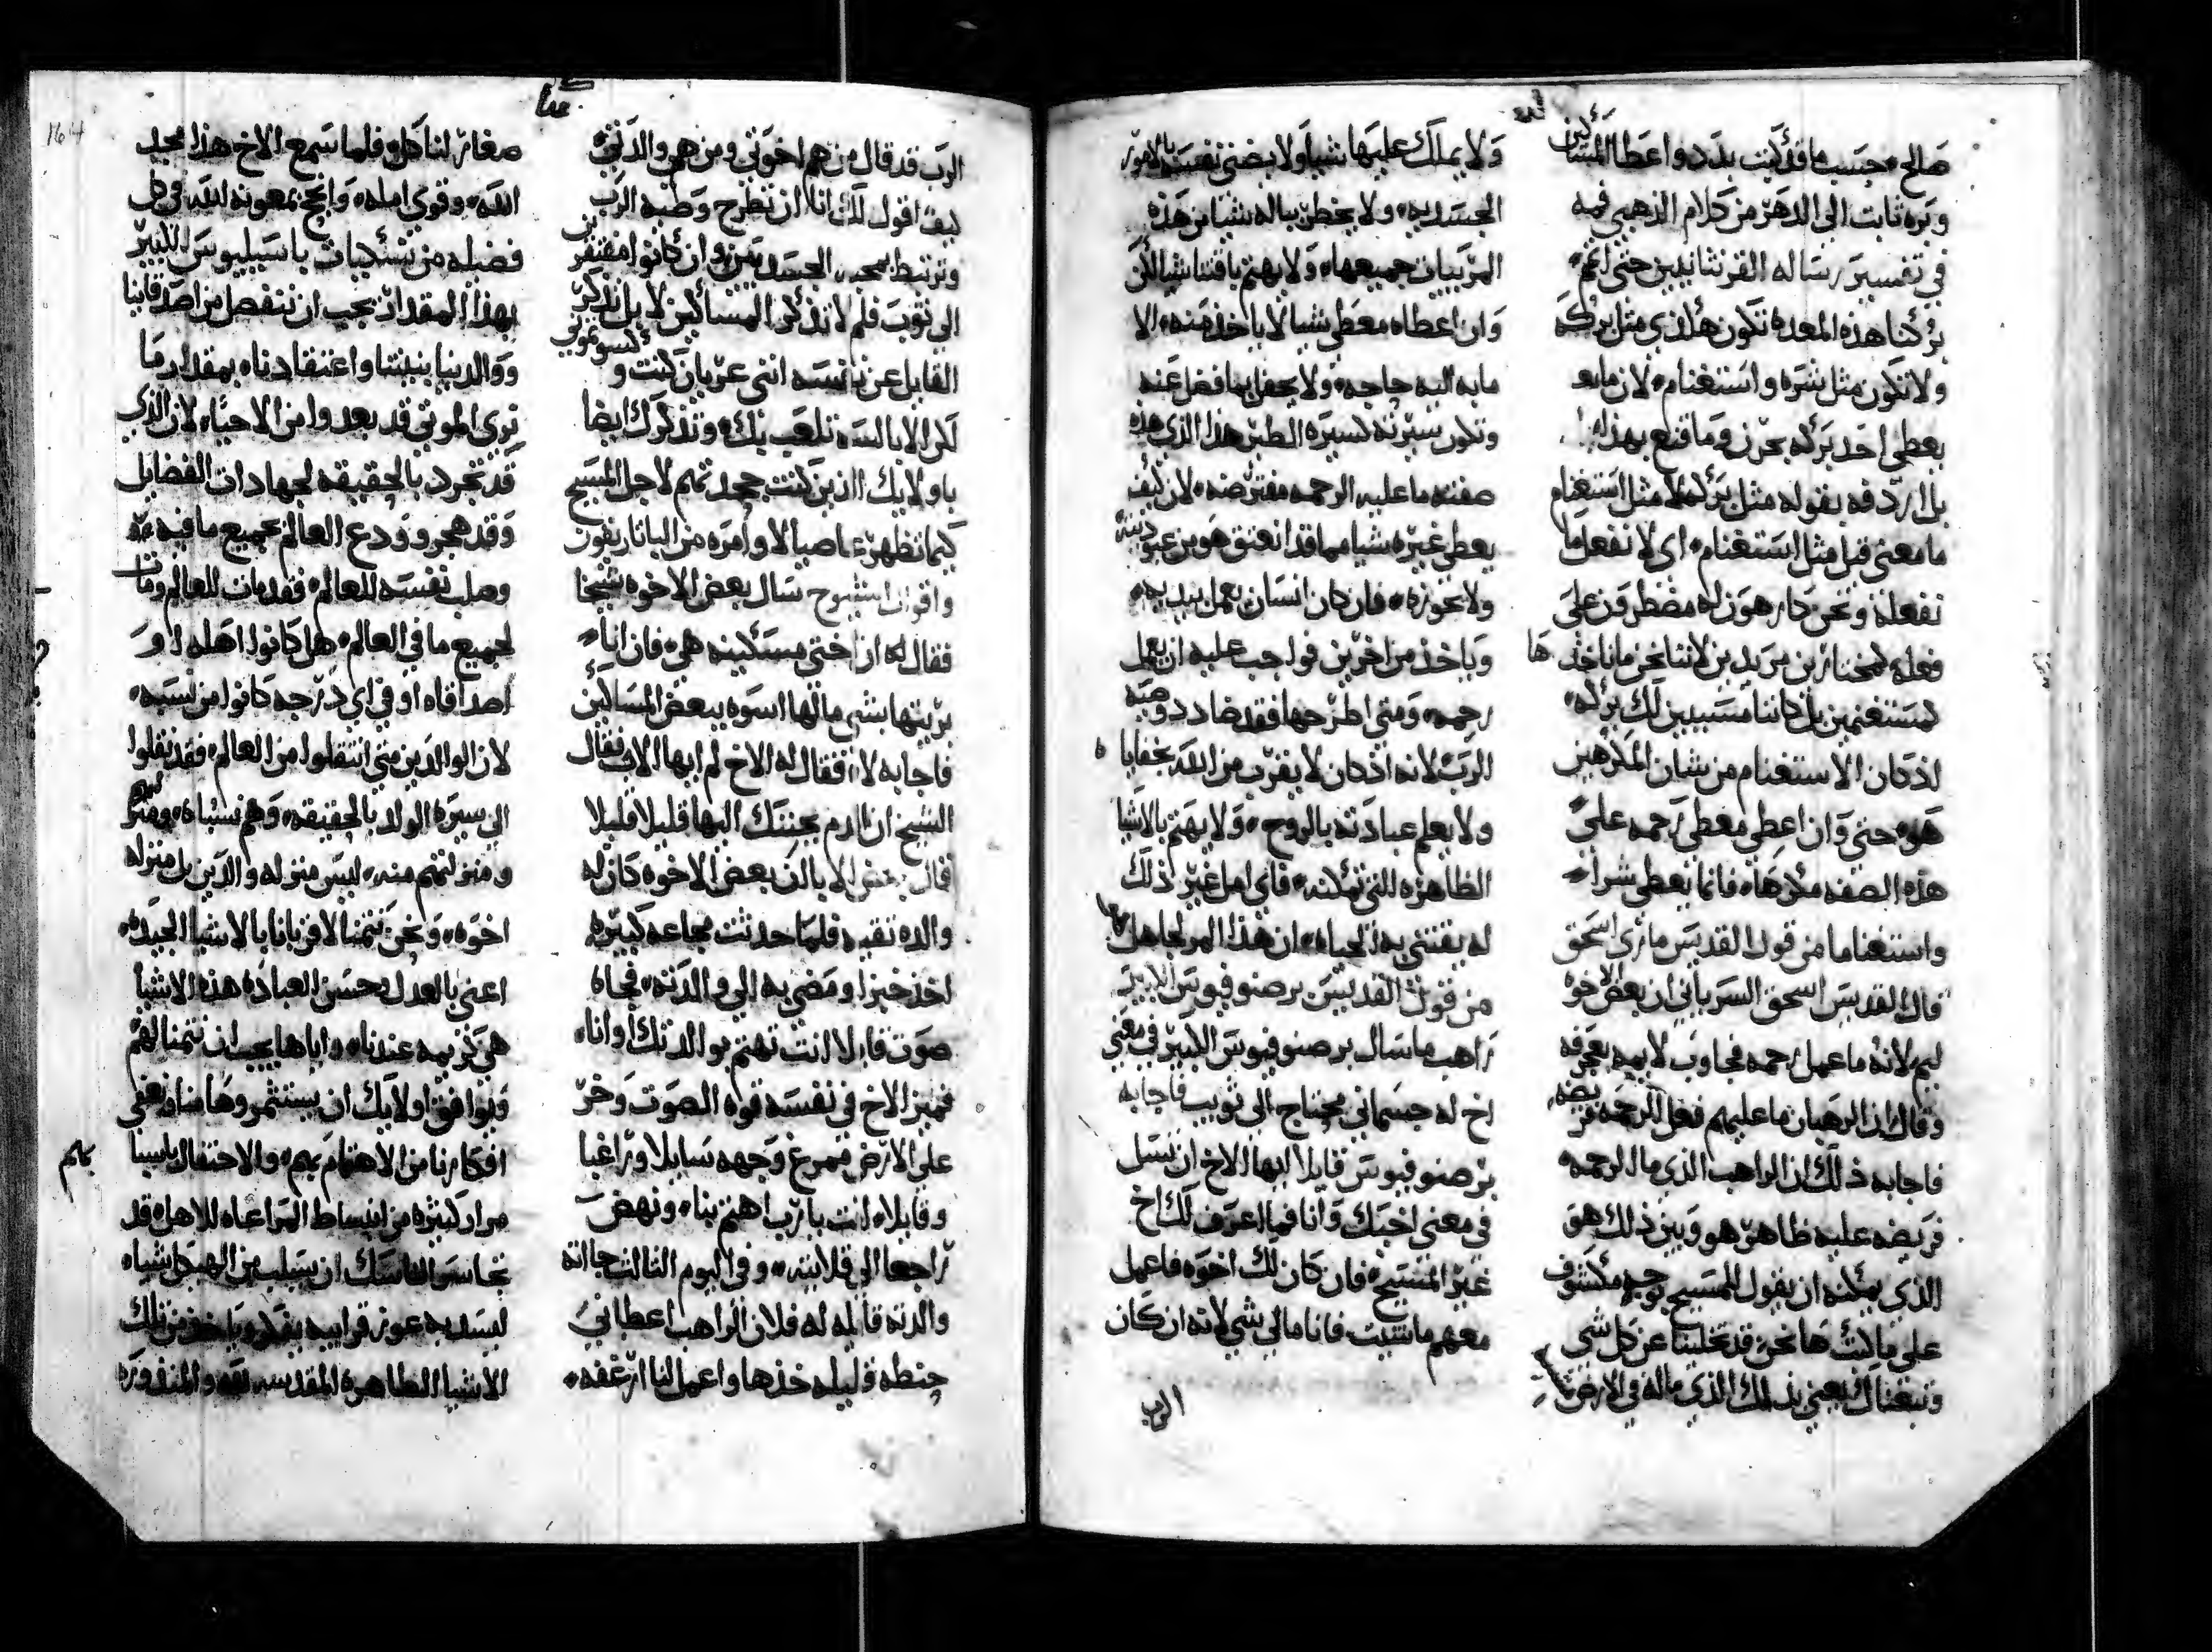 صالح حسب ما قد كتب بدد واعطا المساكين
وبره ثابت الى الدهر من كلام الذهبي فمه
في تفسير رساله القرنثانيين حتى اتمم
بركتنا هذه المعده تكون هكذي مثل بركه
ولا تكون مثل شره واستغنام لان ما
يعطي احد بركه بحزن وما قنع بهذا
بل اردفه بقوله مثل بركه لا مثل استغنام
ما معنى قبل مثل استغنام اي لا نفعل ما
نفعله ونحن كارهون له مضطرون على
فعله كمختارين مريدين لاننا نحن ما ناخذها
كمستغنمين بل كاننا مسببين لك بركه
اذ كان الاستغنام من شان المكرهين
هو حتى وان اعطي معطي رحمه على
هذه الصفه مكرها فانما يعطي شرا
واستغناما من قول القديس ماري اسحق
قال القديس اسحق السرياني ان بعض الاخوه
ليم لانه ما عمل رحمه فجاوب لايمه بعجرفه
وقال ان الرهبان ما عليهم فعل الرحمه فريضه
فاجابه ذلك ان الراهب الذي ما الرحمه
فريضه عليه ظاهر هو وبين ذلك هو
الذي يمكنه ان يقول للمسيح بوجه مكشوف
على ما كتب ها نحن قد تخلينا عن كل شي
وتبعناك يعني بذلك الذي ماله في الارض شيا
ولا يملك عليها شيا ولا يضني نفسه بالامور
الجسديه ولا يخطر بباله شيا من هذه
المرييات جميعها ولا يهتم باقتنا شيا لكن
وان اعطاه معطي شيا لا ياخذ منه الا
ما به اليه حاجه ولا يحفل بما فضل عنه
وتكون سيرته كسيره الطير هذا الذي هذه
صفته ما عليه الرحمه مفترضه لان كيف
يعطي غيره شيا مما قد انعتق هو من عبوديته
ولا يحوزه فان كان انسان يعمل بيديه
وياخذ من اخرين فواجب عليه ان يعمل
رحمه ومتى اطرحها فقد ضادد وصيه
الرب لانه اذ كان لا يقرب من الله بخفايا
ولا يعلم عبادته بالروح ولا يهتم بالاشيا
الظاهره التي تمكنه فاي امل غير ذلك
له يقتني به الحياه ان هذا المر لجاهل
من قول القديسين برصنوفيوس الكبير
راهب ما سال برصنوفيوس الكبير في معنى
اخ له جسماني محتاج الى ثوب فاجابه
برصنوفيوس قايلا ايها الاخ ان تسل
في معنى اخيك وانا فما اعرف لك اخ
غير المسيح فان كان لك اخوه فاعمل
معهم ما شيت فانا ما لي شي لانه ان كان
الرب
الرب قد قال من هم اخوتي ومن هي والدتي
كيف اقول لك انا ان تطرح وصيه الرب
وترتبط بمحبه الجسديين وان كانوا مفتقرين
الى ثوب فلم لا تذكر المساكين لا بل تذكر
القايل عن نفسه انني عريان كنت وكسوتموني
لكن الابالسه تلعب بك وتذكرك ايضا
باولايك الذين كنت جحدتهم لاجل المسيح
كيما تظهر عاصيا لاوامره من الباتاريقون
واقوال الشيوخ سال بعض الاخوه شيخا
فقال له ان اختي مسكينه هي فان انا
بريتها بشي ما لها اسوه ببعض المساكين
فاجابه لا فقال له الاخ لم ايها الاب فقال
الشيخ ان الدم يجتبك اليها قليلا قليلا
قال بعض الابا ان بعض الاخوه كان له
والده تقيه فلما حدثت مجاعه كبيره
اخذ خبزا ومضى به الى والدته فجاه
صوت قايلا انت تهتم بوالدتك او انا
فميز الاخ في نفسه قوه الصوت وخر
على الارض فمرغ وجهه سايلا وراغبا
وقايلا انت يا رب اهتم بنا ونهض
راجعا الى قلايته وفي اليوم الثالث جااته
والدته قايله له فلان الراهب اعطاني
حنطه قليله خذها واعمل لنا ارغفه
صغار لناكل فلما سمع الاخ هذا مجد
الله وقوي امله وانجح بمعونه الله في كل
فضيله من نسكيات باسيليوس الكبير
بهذا المقدار يجب ان ننفصل من اصدقاينا
ووالدينا بنيتنا واعتقادنا بمقدار ما
نرى الموتى قد بعدوا من الاحيا لان الذي
قد تجرد بالحقيقه لجهادات الفضايل
وقد هجر وودع العالم بجميع ما فيه
وصلب نفسه للعالم فقد مات للعالم ومات
لجميع ما في العالم هل كانوا اهله او
اصدقاه او في اي درجه كانوا من نسبه
لان الوالدين متى انتقلوا من العالم فقد نقلوا
الى سيره الولد بالحقيقه وهم نسباه
ومنزلتهم منه ليس منزله والدين بل منزله
اخوه ونحن نتمنا لاقربانا بالاشيا الجيده
اعني بالعدل وحسن العباده هذه الاشيا
هي كريمه عندنا واياها يجب ان نتمنا لهم
ويوافق اولايك ان يستثمروها منا ونعفي
افكارنا من الاهتمام بهم والاحتفال باسبابهم
مرار كثيره من انبساط المراعاه للاهل قد
تجاسر الناسك ان يسلب من الهيكل شيا
ليسد به عوز قرايبه بفكر وياخذ من تلك
الاشيا الطاهره المقدسه لله والمنذوره